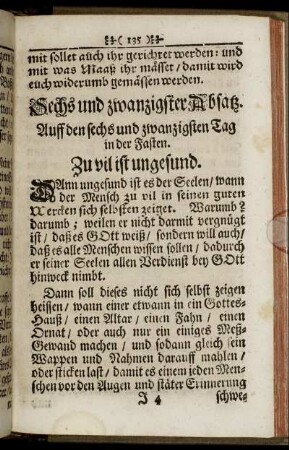 ( 135 )
mit sollet auch ihr gerichtet werden: und
mit was Maaß ihr mässet / damit wird
euch widerumb gemässen werden.
Sechs und zwanzigster Absatz.
Auff den sechs und zwanzigsten Tag
in der Fasten.
Zu vil ist ungesund.
DAnn ungesund ist es der Seelen / wann
der Mensch zu vil in seinen guten
Wercken sich selbsten zeiget. Warumb?
darumb; weilen er nicht darmit vergnügt
ist / daß es GOtt weiß / sondern will auch/
daß es alle Menschen wissen sollen / dadurch
er seiner Seelen allen Verdienst bey GOtt
hinweck nimbt.
Dann soll dieses nicht sich selbst zeigen
heissen / wann einer etwann in ein Gottes-
Hauß / einen Altar / einen Fahn / einen
Ornat / oder auch nur ein einiges Meß-
Gewand machen / und sodann gleich sein
Wappen und Nahmen darauff mahlen /
oder sticken last / damit es einem jeden Men-
schen vor den Augen und stäter Erinnerung
J 4 schwe-